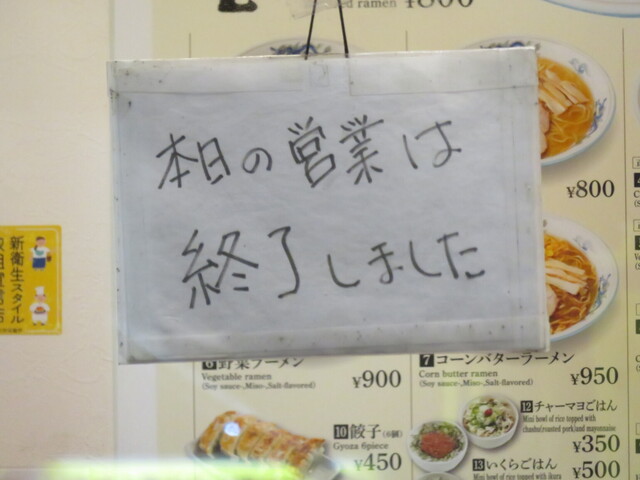 ed ramen ¥800
本日の営業は
終了しました
¥800
新衛生スタイル
6 野菜ラーメン
Vegetable ramen
(Soy sauce-,Miso-,Salt-flavored)
¥900
7 コーンバターラーメン
Corn butter ramen
(Soy sauce-,Miso-,Salt-flavored)
¥950
10 餃子(6個)
Gyoza 6piece
¥450
12 チャーマヨごはん
Mini bowl of rice topped with
chashu(roasted pork)and mayonnaise
¥350
13 いくらごはん
Mini bowl of rice topped with ikura
¥500